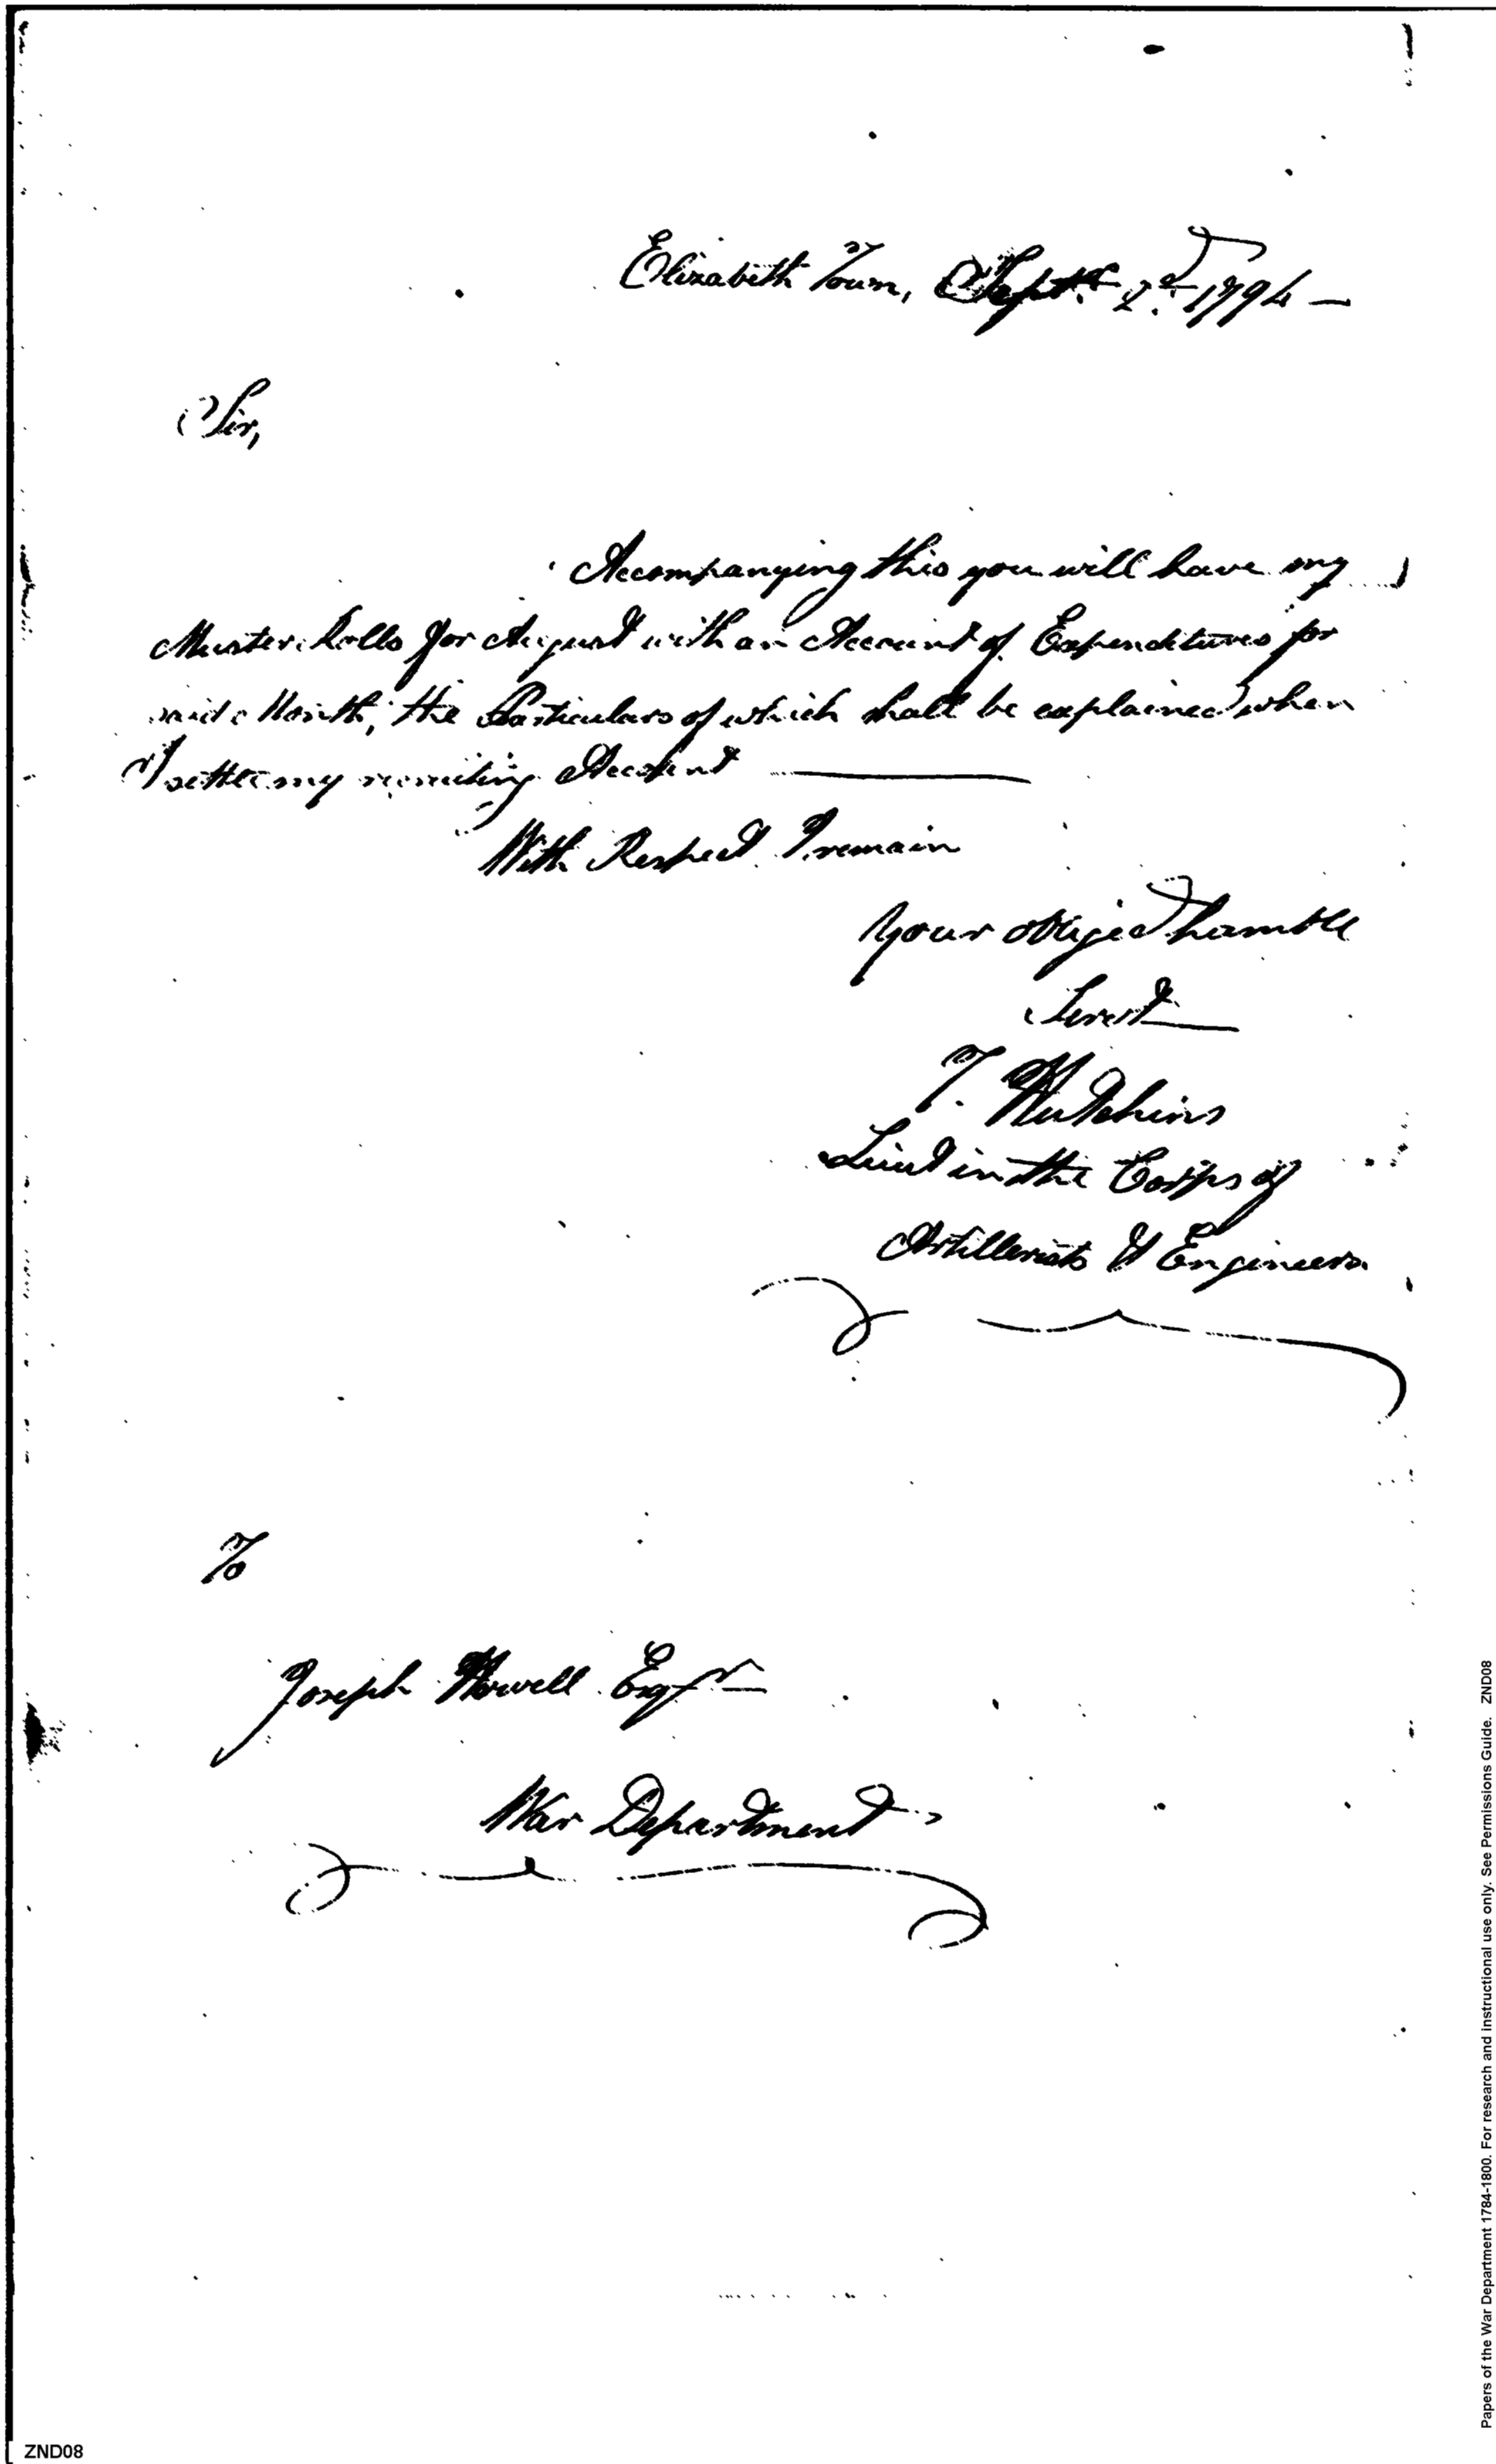 Elizabeth Town, Septr. 2d. 1794 —
Sir,
Accompanying this you will have my
Muster Rolls for August with an Account of Expenditures for
said Month, the Particulars of which shall be explained when
I settle my recruiting Account
With Respect I remain
Your obliged humble
Servt
T. Hutchins
Lieut in the Corps of
Artillerists & Engineers
To
Joseph Howell Esqr
War Department
ZND08
Papers of the War Department 1784-1800. For research and instructional use only. See Permissions Guide. ZND08